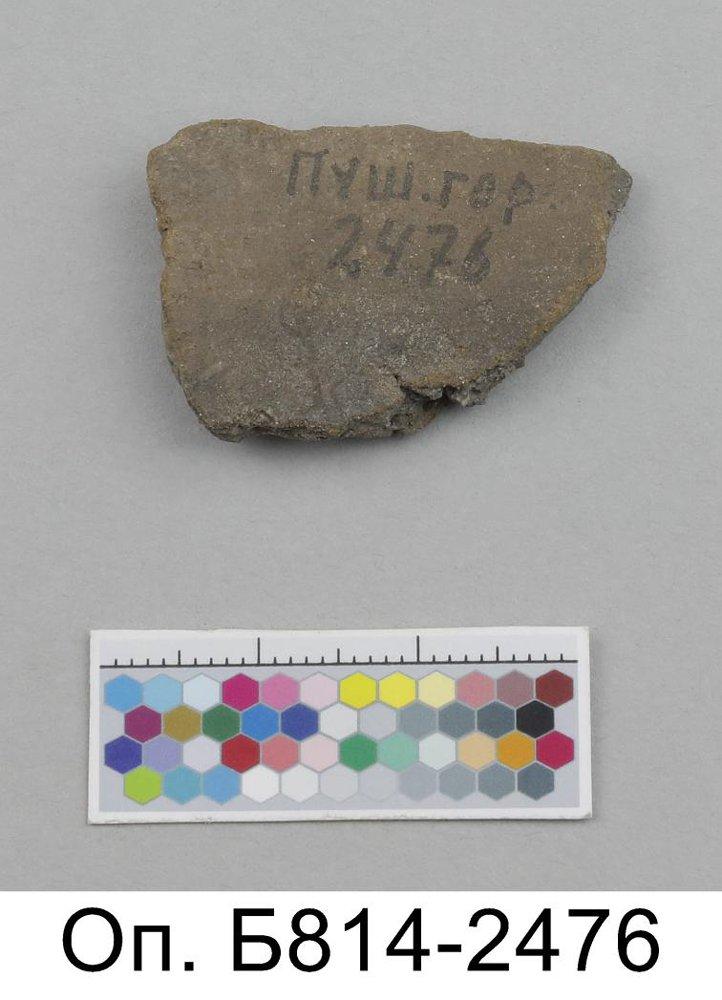 ПУШ.ГОР.
2476
Оп. Б814-2476